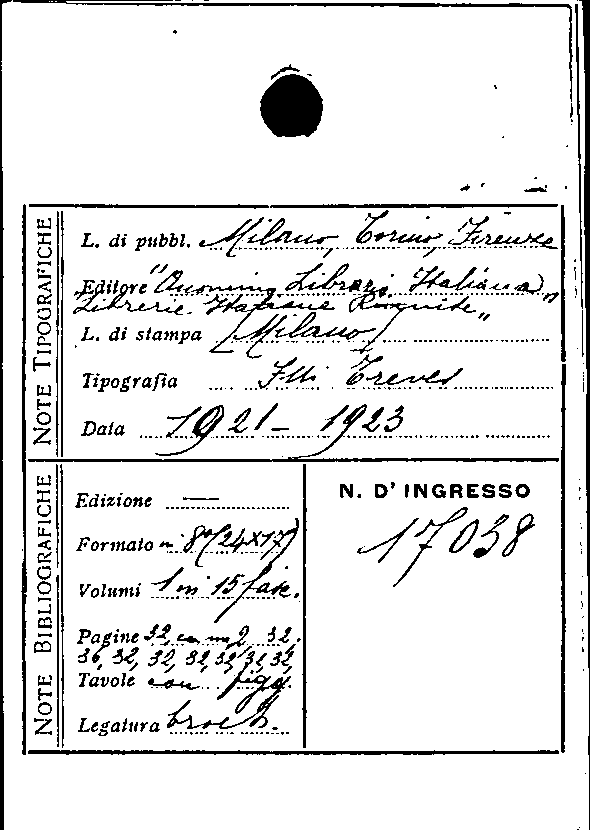 NOTE TIPOGRAFICHE
L. di pubbl. Milano, Torino, Firenze
Editore "Anonima Libraria Italiana"
Librerie Italiane Riunite"
L. di stampa (Milano)
Tipografia F.lli Treves
Data 1921 - 1923
NOTE BIBLIOGRAFICHE
Edizione —
Formato in 8° (24x17)
Volumi 1 in 15 fasc.
Pagine 32, 32.
36, 32, 32, 32, 32, 32, 32,
Tavole con figg.
Legatura broch.
N. D'INGRESSO
17038